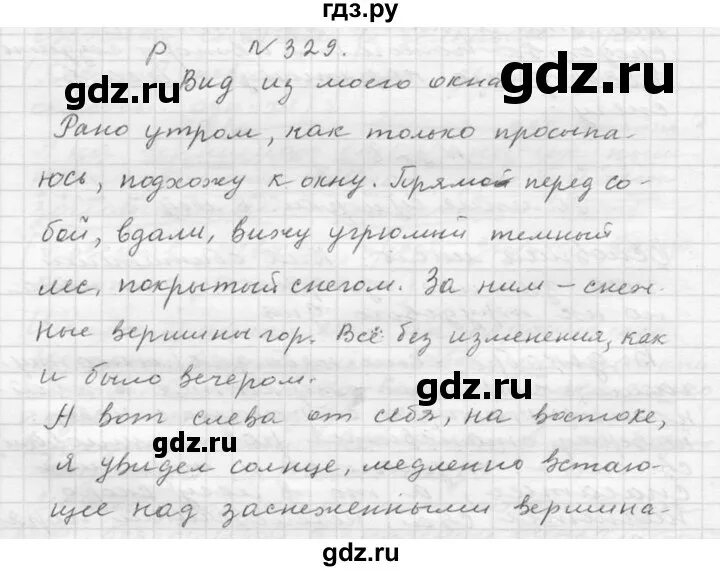 гдз.ру
Р N 329.
gdz.ru gdz.ru
Вид из моего окна
Рано утром, как только просыпа-
юсь, подхожу к окну. Прямо перед со-
бой, вдали, вижу угрюмый темный
лес, покрытый снегом. За ним – снеж-
ные вершины гор. Всё без изменения, как
и было вечером.
gdz.ru
А вот слева от себя, на востоке,
gdz.ru
я увидел солнце, медленно встаю-
щее над заснеженными вершина-
gdz.ru